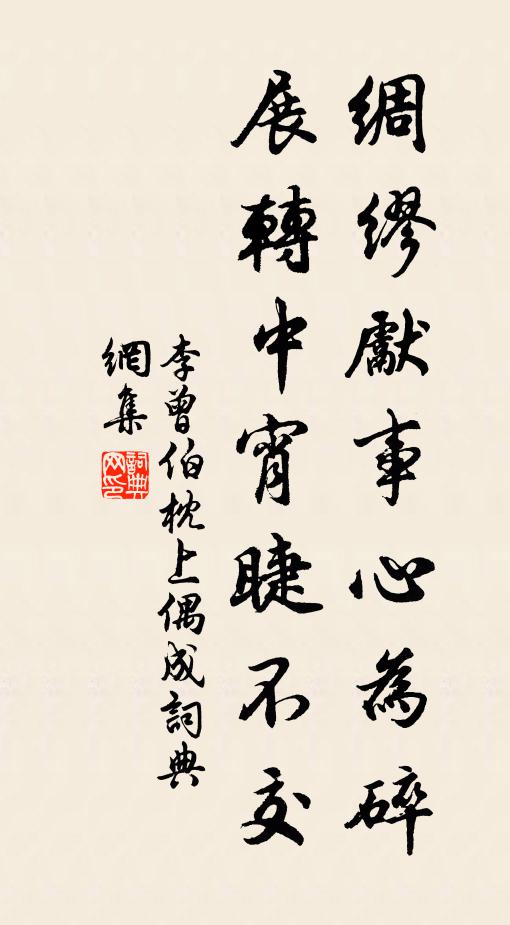 綢繆獻事心為碎
展轉中宵睫不交
李曾伯枕上偶成詞典
網集
詞典網印